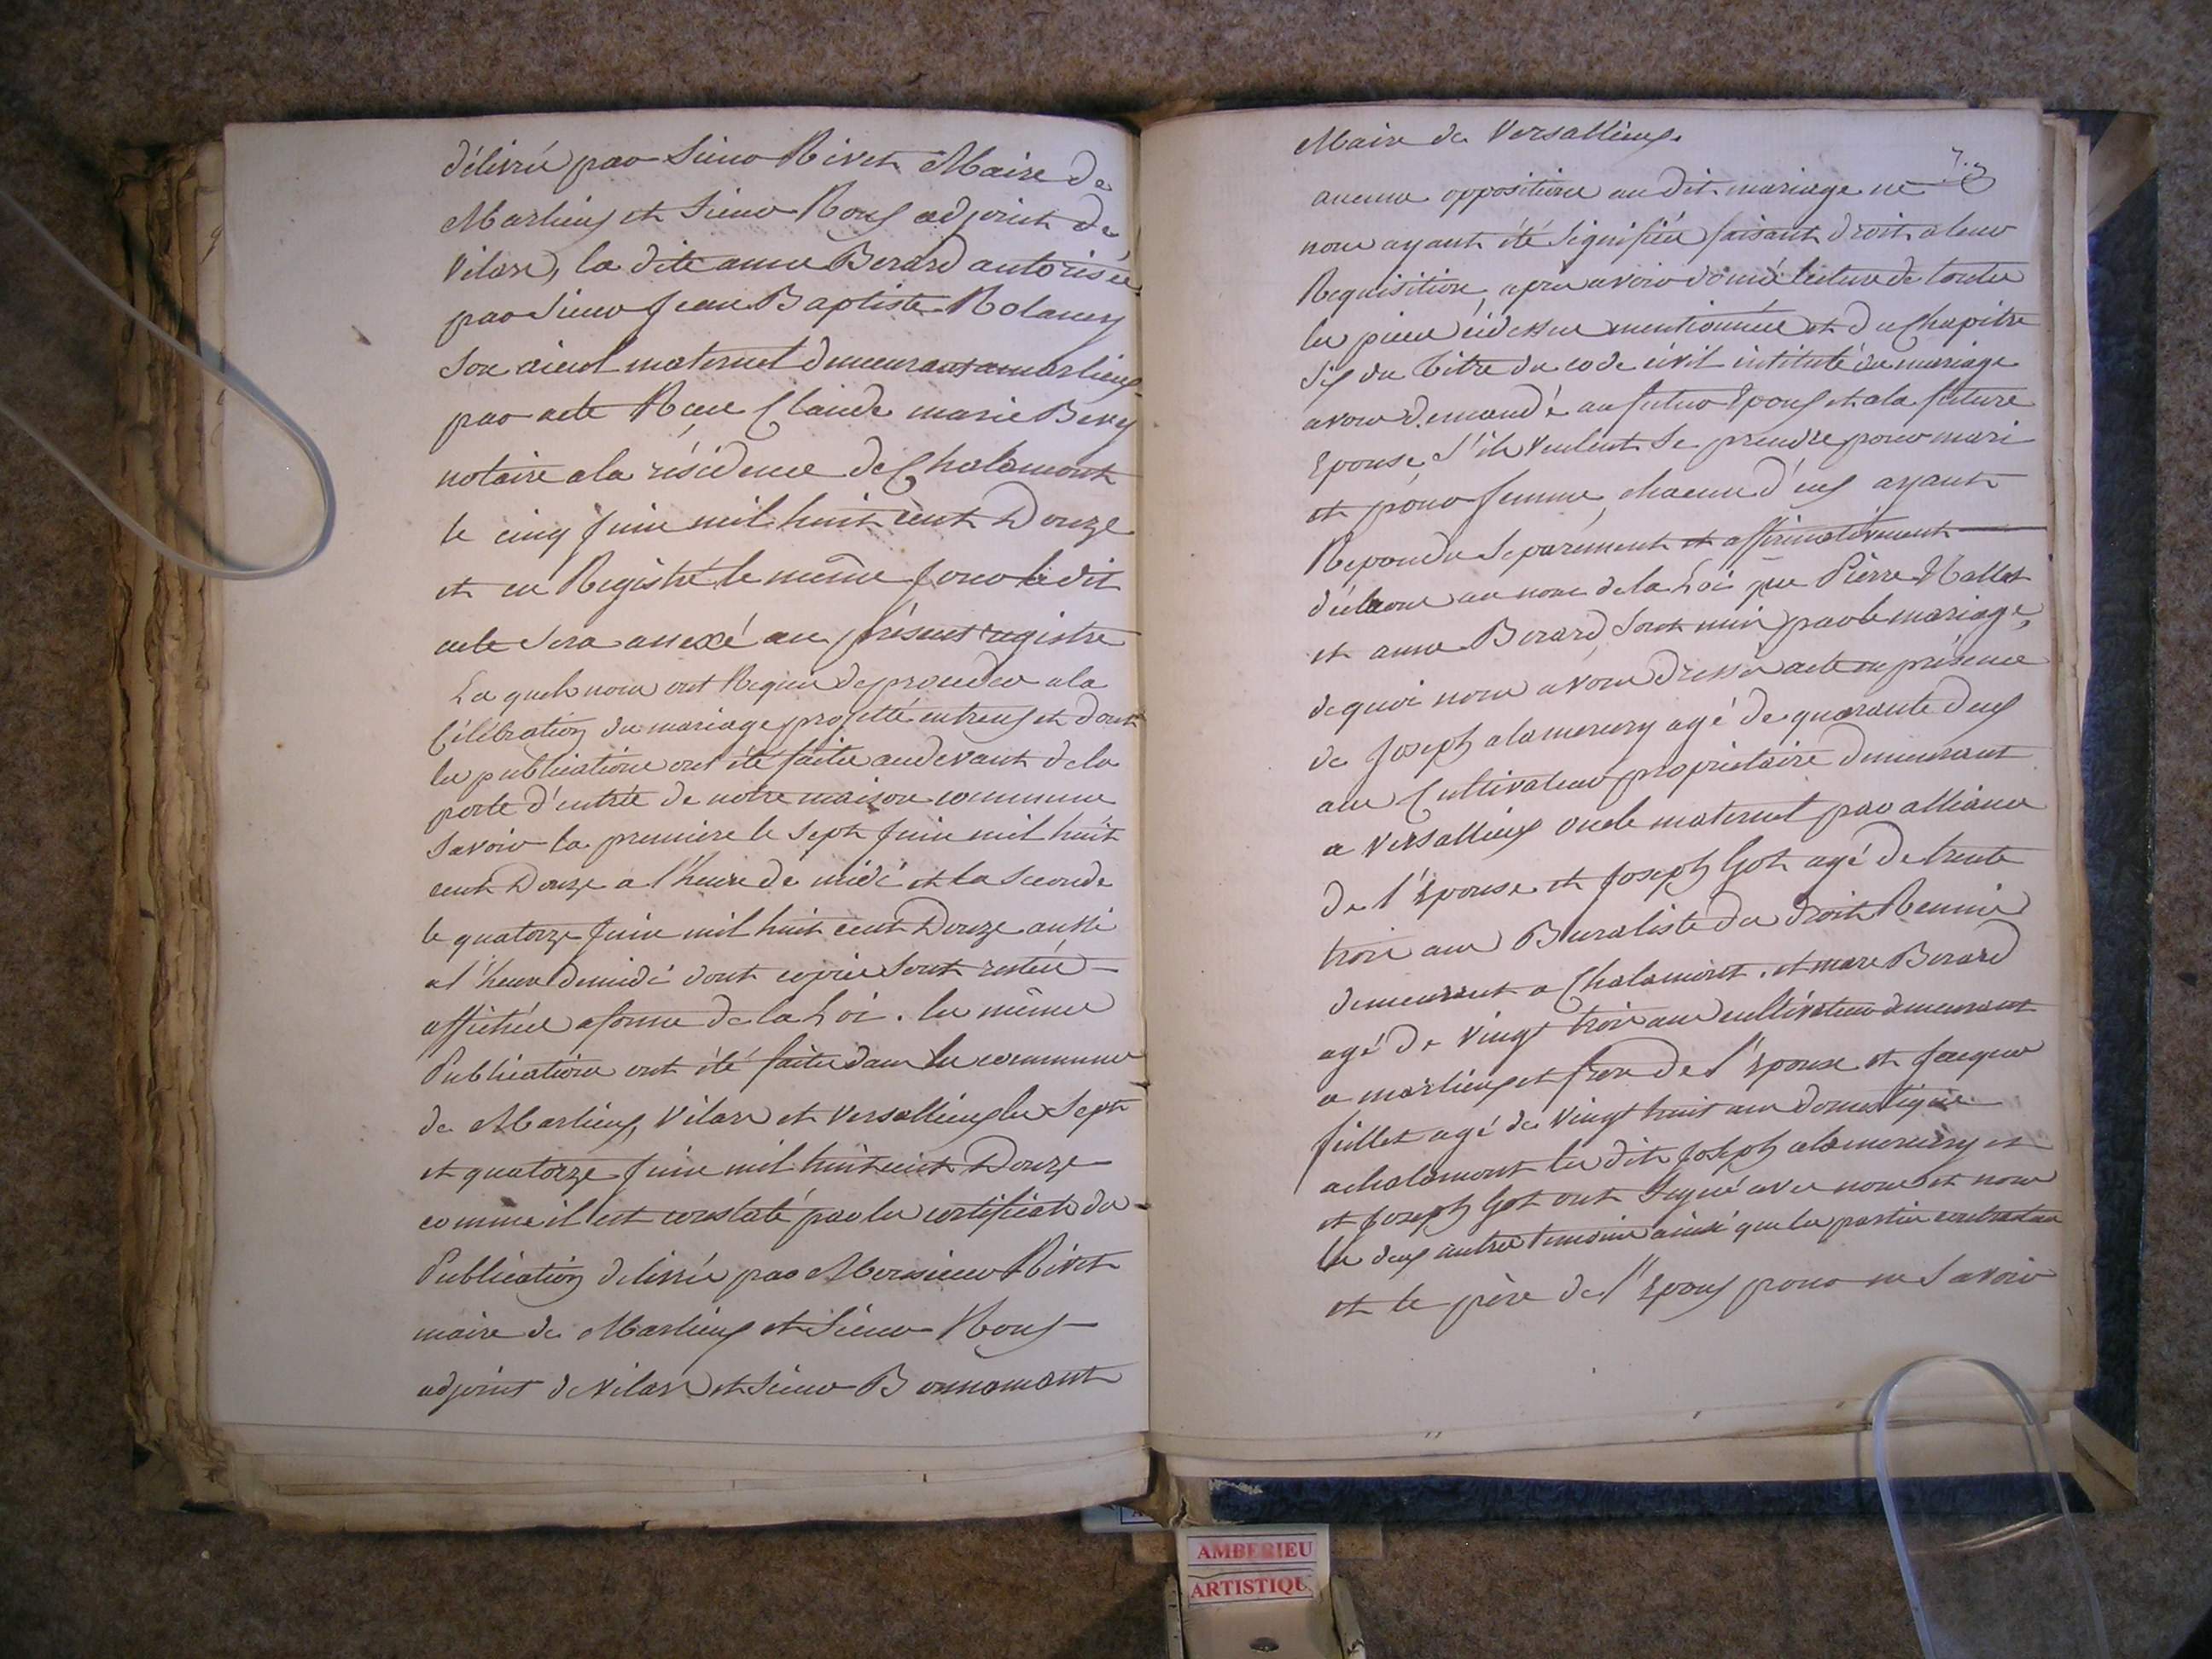 délivré par Sieur Rivet Maire de
Marlieux et Sieur Roux adjoint de
Vilars, la dite anne Berard autorisée
par Sieur Jean Baptiste Rolancy
Son aieul maternel demeurant a marlieux
par acte Recu Claude marie Bevy
notaire a la résidence de Chalamont
le cinq Juin mil huit cent Douze
et en Registré le même jour le dit
acte Sera annexé au présent registre
Les quels nous ont Requis de proceder a la
Célébration du mariage projetté entreux et dont
les publications ont été faites au devant de la
porte d'entrée de notre maison commune
Savoir la première le Sept Juin mil huit
cent Douze a l'heure de midi et la Seconde
le quatorze Juin mil huit cent Douze aussi
a l'heure de midi dont copies sont restées
affichées a forme de la Loi. les mêmes
Publications ont été faites dans les communes
de Marlieux, Vilars et Versallieux les Sept
et quatorze Juin mil huit cent Douze
comme il est constaté par les certificats de
Publication délivrés par Messieurs Rivet
maire de Marlieux et Sieur Roux
adjoint de Vilars et Sieur Bonnamant
Maire de Versallieux.
aucune opposition au dit mariage ne
nous ayant été Signifiée faisant droit a leur
Requisition, apres avoir donné lecture de toutes
les pièces cidessus mentionnées et du Chapitre
Six du titre du code civil intitulé du mariage
avons demandé au futur Epoux et a la future
Epouse, S'ils veulent Se prendre pour mari
et pour femme, chacun d'eux ayant
Repondu Séparement et affirmativement
déclarons au nom de la Loi que Pierre Hallet
et anne Berard, Sont unis par le mariage,
de quoi nous avons dressé acte en présence
de Joseph alamercery agé de quarante deux
ans Cultivateur propriétaire demeurant
a Versallieux oncle maternel par alliance
de l'Epouse et Joseph Got agé de trente
trois ans Buraliste du droit Reunis
demeurant a Chalamont, et marc Berard
agé de vingt trois ans cultivateur demeurant
a marlieux et frere de l'Epouse et Jacques
fillet agé de vingt huit ans domestique
a chalamont les dits Joseph alamercery et
et Joseph Got ont Signé avec nous et non
les deux autres temoins ainsi que les parties contractantes
et le père de l'Epoux pour ne Savoir
AMBERIEU
ARTISTIQU